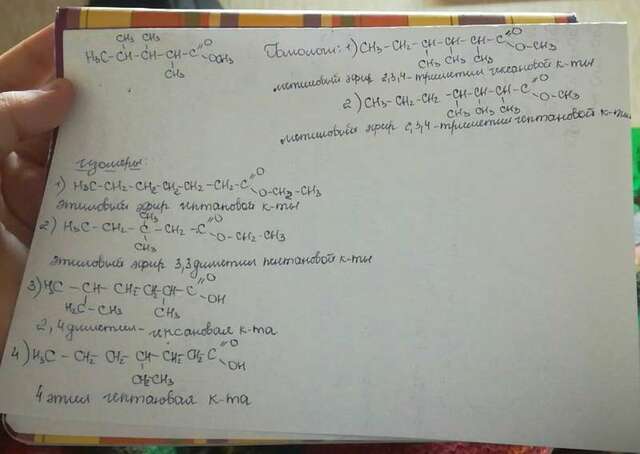 CH₃ CH₃
H₃C-CH-CH-CH-C=O OCH₃
CH₃
Гомологи: 1) CH₃-CH₂-CH-CH-CH-C=O O-CH₃
CH₃ CH₃ CH₃
метиловый эфир 2,3,4-триметил гексановой к-ты
2) CH₃-CH₂-CH₂-CH-CH-CH-C=O O-CH₃
CH₃ CH₃ CH₃
метиловый эфир 2,3,4-триметил гептановой к-ты
изомеры:
1) H₃C-CH₂-CH₂-CH₂-CH₂-CH₂-C=O O-CH₂-CH₃
этиловый эфир гептановой к-ты
CH₃
2) H₃C-CH₂-C-CH₂-C=O O-CH₂-CH₃
CH₃
этиловый эфир 3,3диметил пентановой к-ты
3) H₃C-CH-CH₂-CH-C=O OH
H₂C-CH₃ CH₃
2,4диметил-гексановая к-та
4) H₃C-CH₂-CH₂-CH-CH₂-CH₂-C=O OH
CH₂CH₃
4 этил гептановая к-та